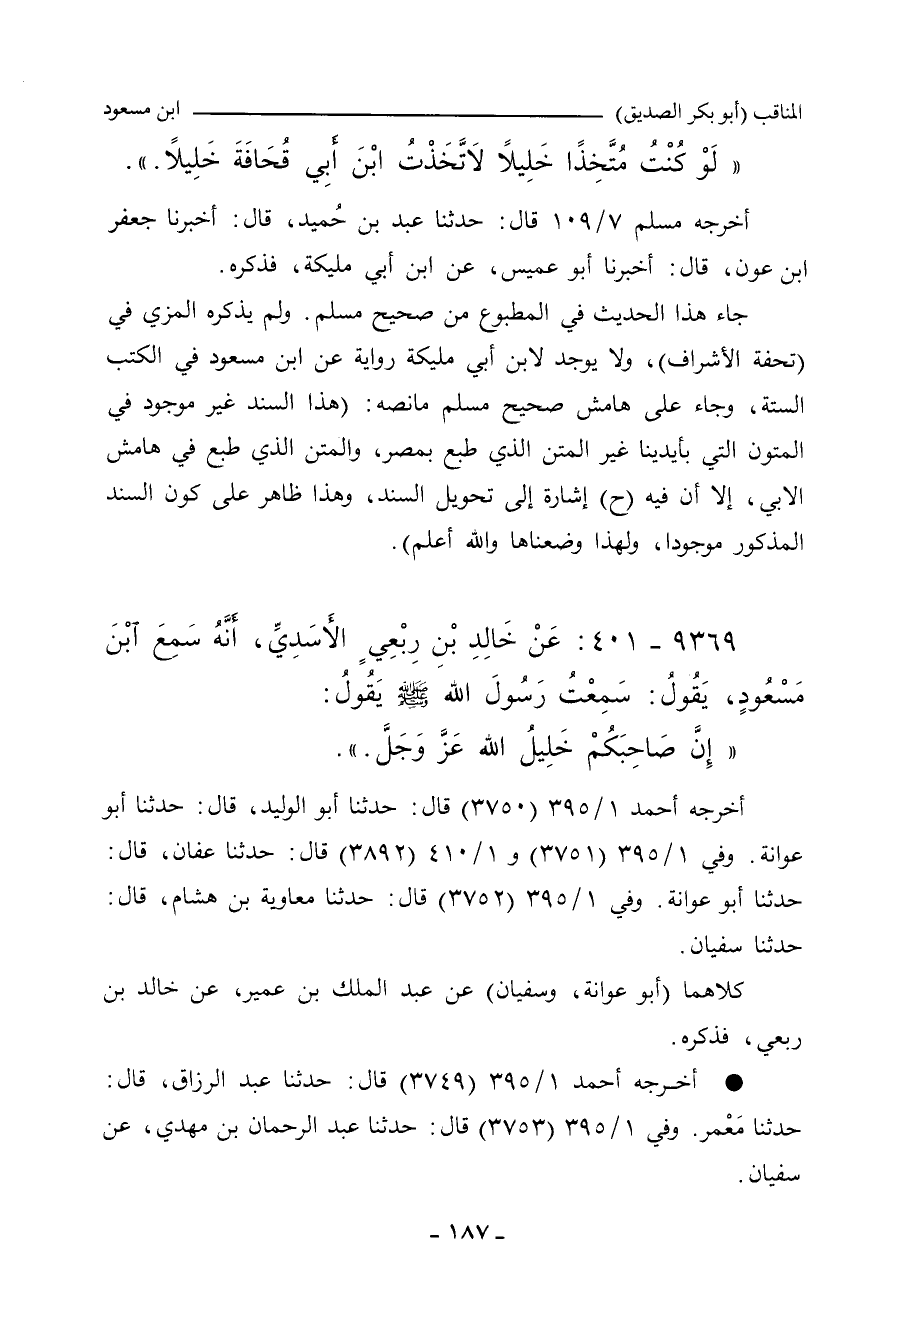 المناقب (أبو بكر الصديق) ــــــــــــــــــــ ابن مسعود
« لَوْ كُنْتُ مُتَّخِذًا خَلِيلًا لَاتَّخَذْتُ ابْنَ أَبِي قُحَافَةَ خَلِيلًا . » .
أخرجه مسلم ٧/١٠٩ قال : حدثنا عبد بن حُميد ، قال : أخبرنا جعفر
ابن عون ، قال : أخبرنا أبو عميس ، عن ابن أبي مليكة ، فذكره .
جاء هذا الحديث في المطبوع من صحيح مسلم . ولم يذكره المزي في
(تحفة الأشراف) ، ولا يوجد لابن أبي مليكة رواية عن ابن مسعود في الكتب
الستة ، وجاء على هامش صحيح مسلم مانصه : (هذا السند غير موجود في
المتون التي بأيدينا غير المتن الذي طبع بمصر ، والمتن الذي طبع في هامش
الابي ، إلا أن فيه (ح) إشارة إلى تحويل السند ، وهذا ظاهر على كون السند
المذكور موجودا ، ولهذا وضعناها والله أعلم) .
٩٣٦٩ - ٤٠١ : عَنْ خَالِدِ بْنِ رِبْعِيٍ الأَسَدِيِّ ، أَنَّهُ سَمِعَ ٱبْنَ
مَسْعُودٍ ، يَقُولُ : سَمِعْتُ رَسُولَ الله ﷺ يَقُولُ :
« إِنَّ صَاحِبَكُمْ خَلِيلُ الله عَزَّ وَجَلَّ . » .
أخرجه أحمد ١/٣٩٥ (٣٧٥٠) قال : حدثنا أبو الوليد ، قال : حدثنا أبو
عوانة . وفي ١/٣٩٥ (٣٧٥١) و ١/٤١٠ (٣٨٩٢) قال : حدثنا عفان ، قال :
حدثنا أبو عوانة . وفي ١/٣٩٥ (٣٧٥٢) قال : حدثنا معاوية بن هشام ، قال :
حدثنا سفيان .
كلاهما (أبو عوانة ، وسفيان) عن عبد الملك بن عمير ، عن خالد بن
ربعي ، فذكره .
● أخرجه أحمد ١/٣٩٥ (٣٧٤٩) قال : حدثنا عبد الرزاق ، قال :
حدثنا مَعْمر . وفي ١/٣٩٥ (٣٧٥٣) قال : حدثنا عبد الرحمان بن مهدي ، عن
سفيان .
- ١٨٧ -